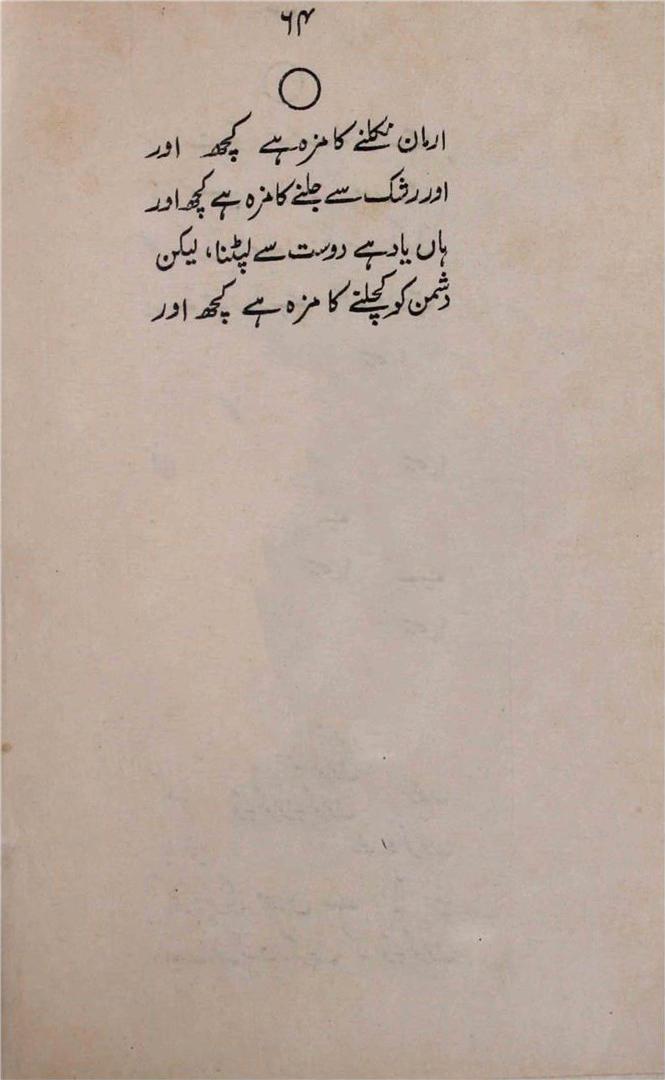 ۶۴
ارمان نکلنے کا مزہ ہے کچھ اور
اور رشک سے جلنے کا مزہ ہے کچھ اور
ہاں یاد ہے دوست سے لپٹنا، لیکن
دشمن کو کچلنے کا مزہ ہے کچھ اور